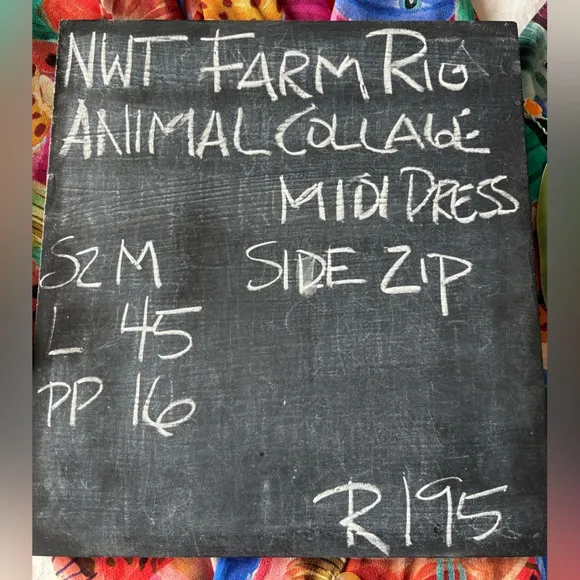 NWT FARM RIO
ANIMAL COLLAGE
MIDI DRESS
SZ M SIDE ZIP
L 45
PP 16
R 195